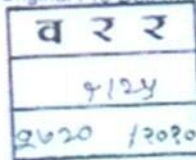 व र र
४/२५
२७२० /२०२०